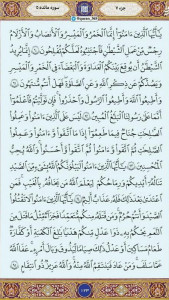 جزء ۷
سوره مائده ۵
يَٰٓأَيُّهَا ٱلَّذِينَ ءَامَنُوٓا۟ إِنَّمَا ٱلْخَمْرُ وَٱلْمَيْسِرُ وَٱلْأَنصَابُ وَٱلْأَزْلَٰمُ
رِجْسٌ مِّنْ عَمَلِ ٱلشَّيْطَٰنِ فَٱجْتَنِبُوهُ لَعَلَّكُمْ تُفْلِحُونَ ٩٠ إِنَّمَا يُرِيدُ
ٱلشَّيْطَٰنُ أَن يُوقِعَ بَيْنَكُمُ ٱلْعَدَٰوَةَ وَٱلْبَغْضَآءَ فِى ٱلْخَمْرِ وَٱلْمَيْسِرِ
وَيَصُدَّكُمْ عَن ذِكْرِ ٱللَّهِ وَعَنِ ٱلصَّلَوٰةِ فَهَلْ أَنتُم مُّنتَهُونَ ٩١
وَأَطِيعُوا۟ ٱللَّهَ وَأَطِيعُوا۟ ٱلرَّسُولَ وَٱحْذَرُوا۟ فَإِن تَوَلَّيْتُمْ فَٱعْلَمُوٓا۟
أَنَّمَا عَلَىٰ رَسُولِنَا ٱلْبَلَٰغُ ٱلْمُبِينُ ٩٢ لَيْسَ عَلَى ٱلَّذِينَ ءَامَنُوا۟ وَعَمِلُوا۟
ٱلصَّٰلِحَٰتِ جُنَاحٌ فِيمَا طَعِمُوٓا۟ إِذَا مَا ٱتَّقَوا۟ وَّءَامَنُوا۟ وَعَمِلُوا۟
ٱلصَّٰلِحَٰتِ ثُمَّ ٱتَّقَوا۟ وَّءَامَنُوا۟ ثُمَّ ٱتَّقَوا۟ وَّأَحْسَنُوا۟ وَٱللَّهُ يُحِبُّ
ٱلْمُحْسِنِينَ ٩٣ يَٰٓأَيُّهَا ٱلَّذِينَ ءَامَنُوا۟ لَيَبْلُوَنَّكُمُ ٱللَّهُ بِشَىْءٍ مِّنَ ٱلصَّيْدِ
تَنَالُهُۥٓ أَيْدِيكُمْ وَرِمَاحُكُمْ لِيَعْلَمَ ٱللَّهُ مَن يَخَافُهُۥ بِٱلْغَيْبِ فَمَنِ
ٱعْتَدَىٰ بَعْدَ ذَٰلِكَ فَلَهُۥ عَذَابٌ أَلِيمٌ ٩٤ يَٰٓأَيُّهَا ٱلَّذِينَ ءَامَنُوا۟ لَا تَقْتُلُوا۟
ٱلصَّيْدَ وَأَنتُمْ حُرُمٌ وَمَن قَتَلَهُۥ مِنكُم مُّتَعَمِّدًا فَجَزَآءٌ مِّثْلُ مَا قَتَلَ مِنَ
ٱلنَّعَمِ يَحْكُمُ بِهِۦ ذَوَا عَدْلٍ مِّنكُمْ هَدْيًۢا بَٰلِغَ ٱلْكَعْبَةِ أَوْ كَفَّٰرَةٌ
طَعَامُ مَسَٰكِينَ أَوْ عَدْلُ ذَٰلِكَ صِيَامًا لِّيَذُوقَ وَبَالَ أَمْرِهِۦ عَفَا ٱللَّهُ
عَمَّا سَلَفَ وَمَنْ عَادَ فَيَنتَقِمُ ٱللَّهُ مِنْهُ وَٱللَّهُ عَزِيزٌ ذُو ٱنتِقَامٍ ٩٥
١٢٣